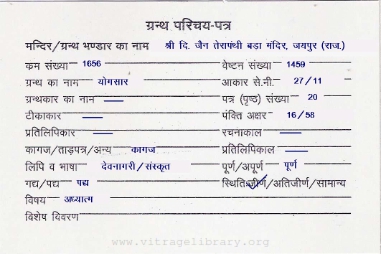 ग्रन्थ परिचय-पत्र
मन्दिर/ग्रन्थ भण्डार का नाम श्री दि. जैन तेरापंथी बडा मंदिर, जयपुर (राज.)
क्रम संख्या 1656 वेष्टन संख्या 1459
ग्रन्थ का नाम योगसार आकार से.मी. 27/11
ग्रन्थकार का नाम — पत्र (पृष्ठ) संख्या 20
टीकाकार — पंक्ति अक्षर 16/58
प्रतिलिपिकार — रचनाकाल —
कागज/ताड़पत्र/अन्य कागज प्रतिलिपिकाल —
लिपि व भाषा देवनागरी/संस्कृत पूर्ण/अपूर्ण पूर्ण
गद्य/पद्य पद्य स्थिति जीर्ण/अतिजीर्ण/सामान्य
विषय अध्यात्म
विशेष विवरण
www.vitragelibrary.org